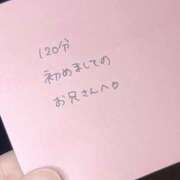 120分
初めましての
お兄さんへ♡